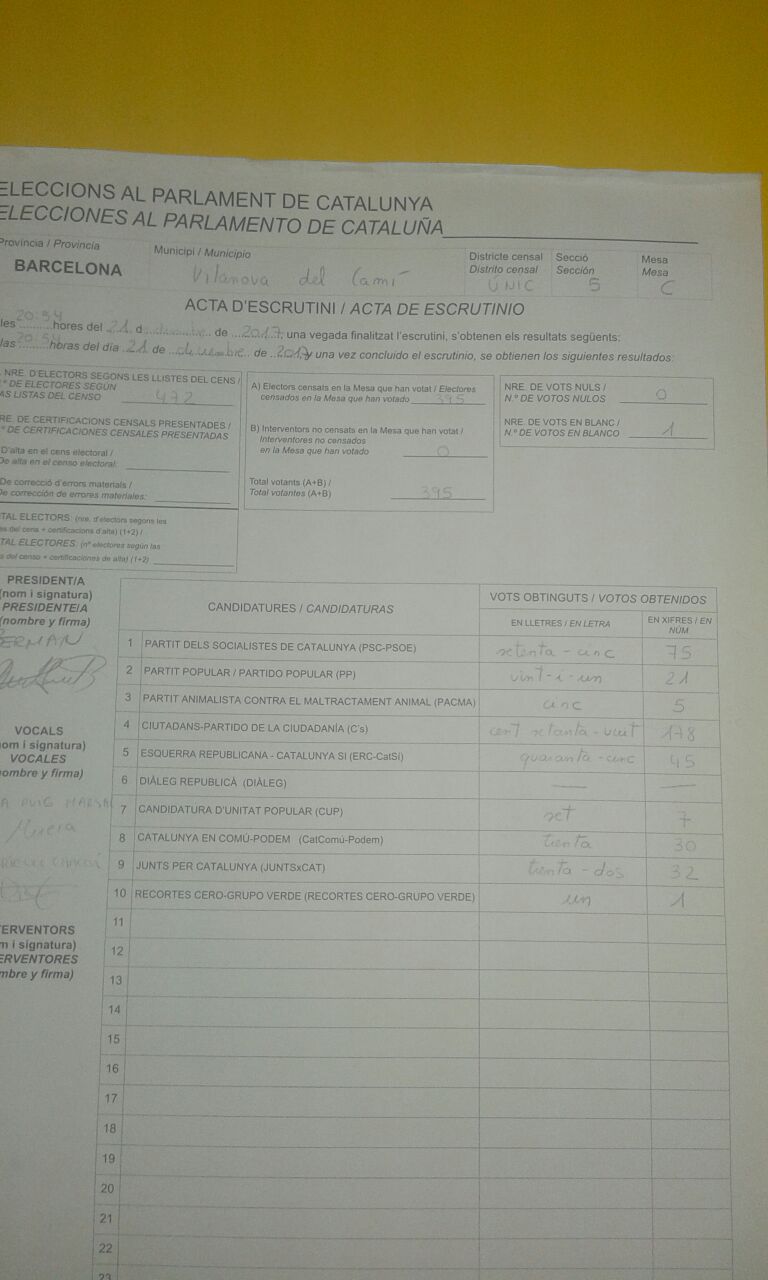 ELECCIONS AL PARLAMENT DE CATALUNYA
ELECCIONES AL PARLAMENTO DE CATALUÑA
Provincia / Provincia
BARCELONA
Municipi / Municipio
Vilanova del Camí
Districte censal
Distrito censal
ÚNIC
Secció
Sección
5
Mesa
Mesa
C
ACTA D'ESCRUTINI / ACTA DE ESCRUTINIO
les 20:54 hores del 21 d desembre de 2017, una vegada finalitzat l'escrutini, s'obtenen els resultats següents:
las 20:54 horas del día 21 de diciembre de 2017 y una vez concluido el escrutinio, se obtienen los siguientes resultados:
NRE. D'ELECTORS SEGONS LES LLISTES DEL CENS /
º DE ELECTORES SEGÚN
AS LISTAS DEL CENSO 472
RE. DE CERTIFICACIONS CENSALS PRESENTADES /
º DE CERTIFICACIONES CENSALES PRESENTADAS
D'alta en el cens electoral /
De alta en el censo electoral:
De correcció d'errors materials /
De corrección de errores materiales:
TAL ELECTORS: (nre. d'electors segons les
es del cens + certificacions d'alta) (1+2) /
TAL ELECTORES: (nº electores según las
s del censo + certificaciones de alta) (1+2)
A) Electors censats en la Mesa que han votat / Electores
censados en la Mesa que han votado 395
B) Interventors no censats en la Mesa que han votat /
Interventores no censados
en la Mesa que han votado 0
Total votants (A+B) /
Total votantes (A+B) 395
NRE. DE VOTS NULS /
N.º DE VOTOS NULOS 0
NRE. DE VOTS EN BLANC /
N.º DE VOTOS EN BLANCO 1
PRESIDENT/A
(nom i signatura)
PRESIDENTE/A
(nombre y firma)
GERMAN
VOCALS
nom i signatura)
VOCALES
ombre y firma)
A PUIG
TERVENTORS
m i signatura)
ERVENTORES
mbre y firma)
CANDIDATURES / CANDIDATURAS
VOTS OBTINGUTS / VOTOS OBTENIDOS
EN LLETRES / EN LETRA
EN XIFRES / EN NÚM
1 PARTIT DELS SOCIALISTES DE CATALUNYA (PSC-PSOE) setenta-cinc 75
2 PARTIT POPULAR / PARTIDO POPULAR (PP) vint-i-un 21
3 PARTIT ANIMALISTA CONTRA EL MALTRACTAMENT ANIMAL (PACMA) cinc 5
4 CIUTADANS-PARTIDO DE LA CIUDADANÍA (C's) cent setanta-vuit 178
5 ESQUERRA REPUBLICANA - CATALUNYA SI (ERC-CatSí) quaranta-cinc 45
6 DIÀLEG REPUBLICÀ (DIÀLEG) — —
7 CANDIDATURA D'UNITAT POPULAR (CUP) set 7
8 CATALUNYA EN COMÚ-PODEM (CatComú-Podem) trenta 30
9 JUNTS PER CATALUNYA (JUNTSxCAT) trenta-dos 32
10 RECORTES CERO-GRUPO VERDE (RECORTES CERO-GRUPO VERDE) un 1
11
12
13
14
15
16
17
18
19
20
21
22
23